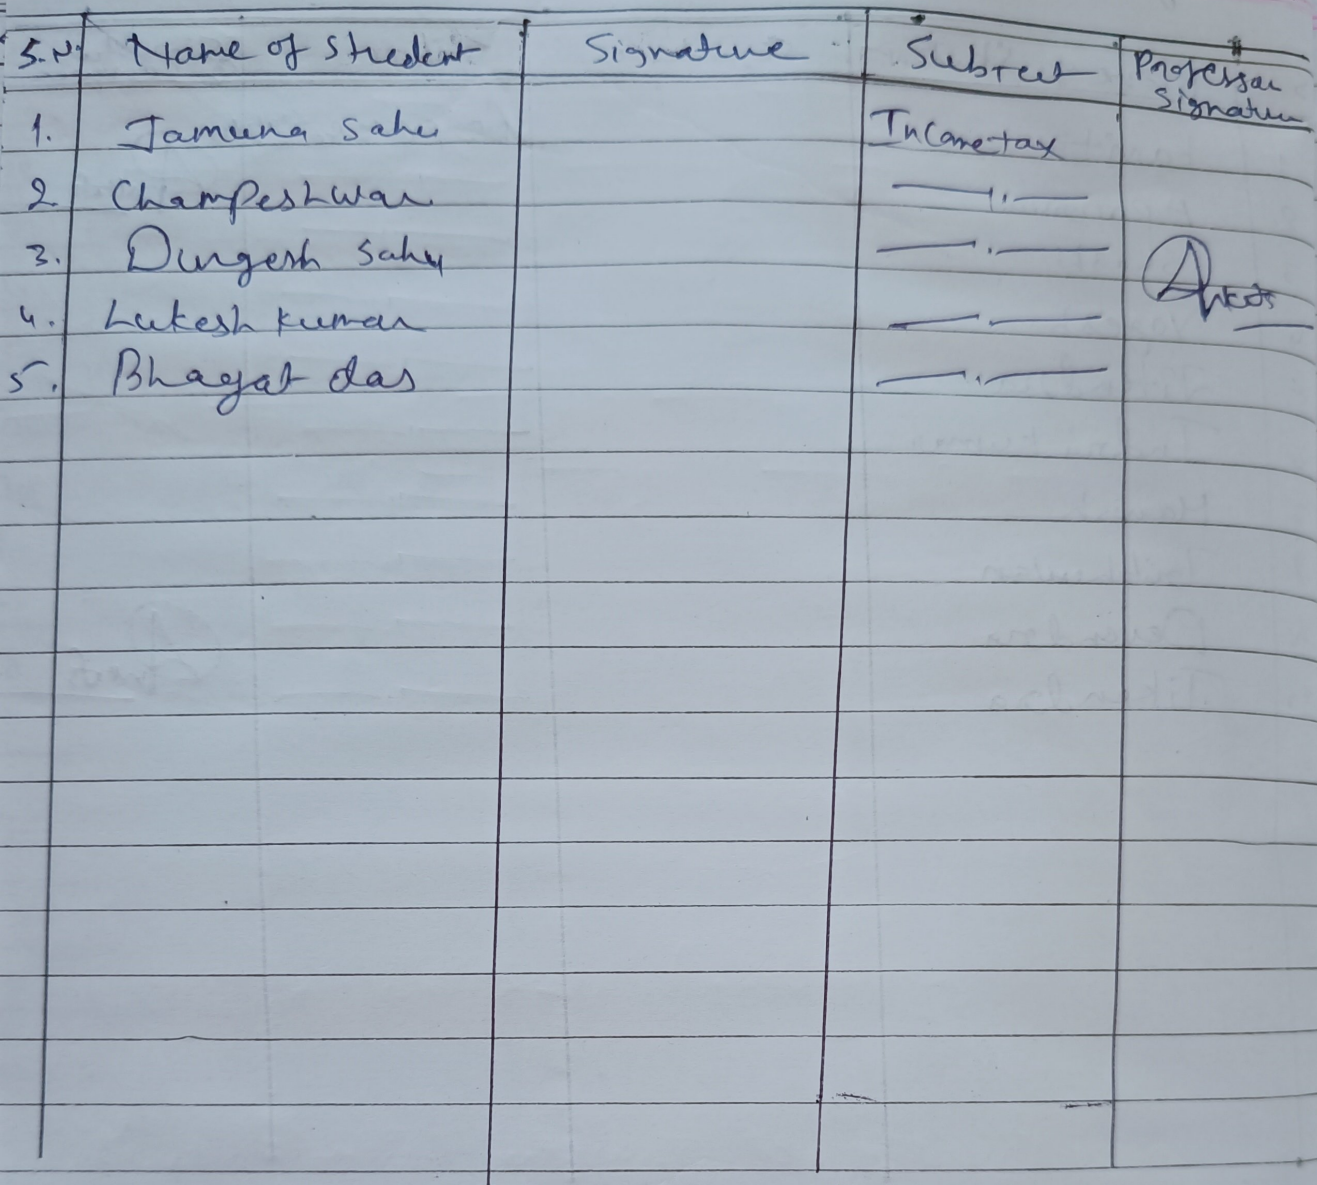 S.N. Name of Student Signature Subject Professor Signature
1. Jamuna Sahu Incometax
2. Champeshwar —〃—
3. Durgesh Sahu —〃—
4. Lukesh Kumar —〃—
5. Bhagat das —〃—